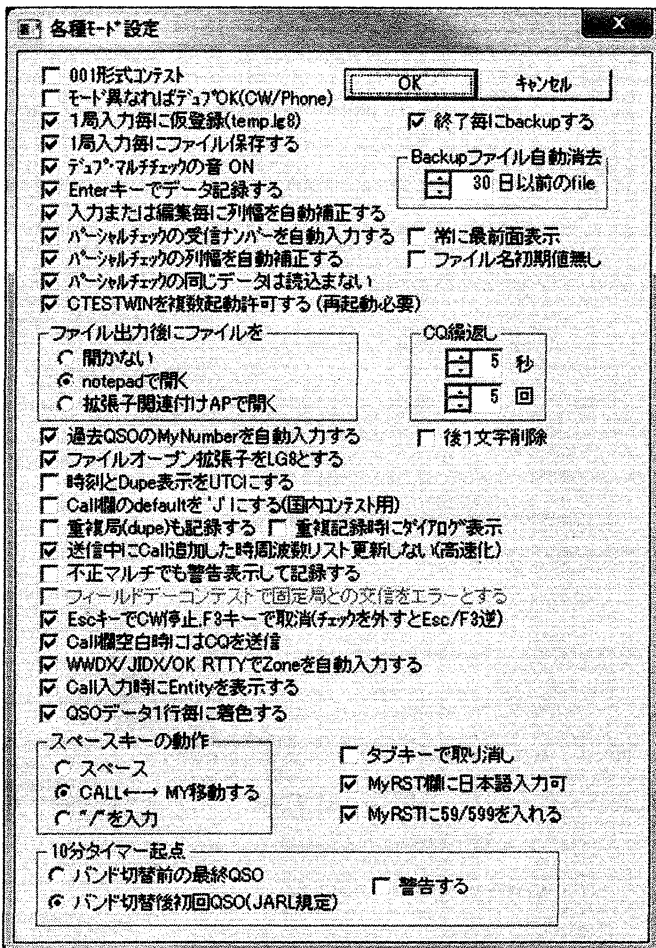 各種モード設定
001形式コンテスト
OK キャンセル
モード異なればデュプOK(CW/Phone)
1局入力毎に仮登録(temp.lg8)
終了毎にbackupする
1局入力毎にファイル保存する
デュプ・マルチチェックの音 ON
Backupファイル自動消去
30 日以前のfile
Enterキーでデータ記録する
入力または編集毎に列幅を自動補正する
パーシャルチェックの受信ナンバーを自動入力する
常に最前面表示
パーシャルチェックの列幅を自動補正する
ファイル名初期値無し
パーシャルチェックの同じデータは読込まない
CTESTWINを複数起動許可する (再起動必要)
ファイル出力後にファイルを
開かない
notepadで開く
拡張子関連付けAPで開く
CQ繰返し
5 秒
5 回
過去QSOのMyNumberを自動入力する
後1文字削除
ファイルオープン拡張子をLG8とする
時刻とDupe表示をUTCにする
Call欄のdefaultを 'J' にする(国内コンテスト用)
重複局(dupe)も記録する 重複記録時にダイアログ表示
送信中にCall追加した時周波数リスト更新しない(高速化)
不正マルチでも警告表示して記録する
フィールドデーコンテストで固定局との交信をエラーとする
EscキーでCW停止,F3キーで取消(チェックを外すとEsc/F3逆)
Call欄空白時にはCQを送信
WWDX/JIDX/OK RTTYでZoneを自動入力する
Call入力時にEntityを表示する
QSOデータ1行毎に着色する
スペースキーの動作
スペース
CALL←→ MY移動する
"/"を入力
タブキーで取り消し
MyRST欄に日本語入力可
MyRSTに59/599を入れる
10分タイマー起点
バンド切替前の最終QSO
バンド切替後初回QSO(JARL規定)
警告する